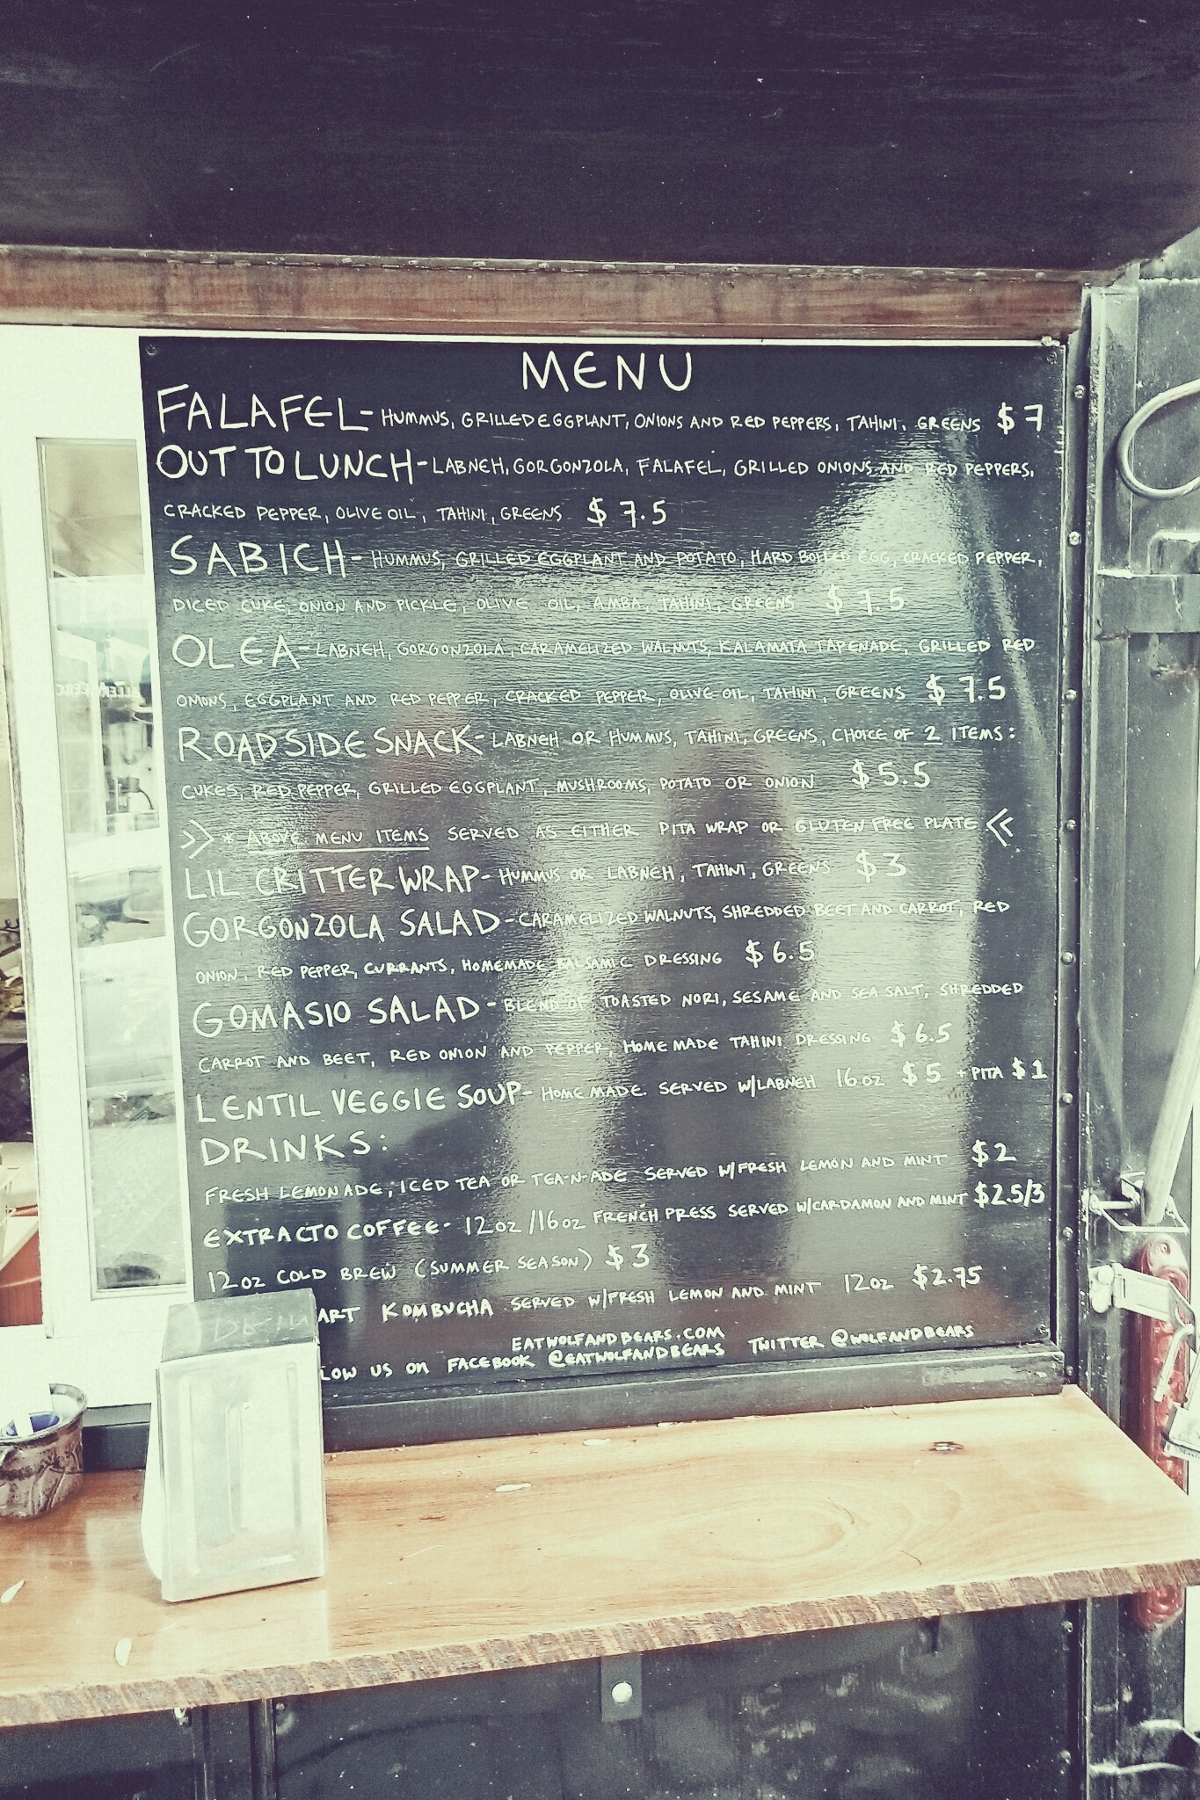 MENU
FALAFEL- HUMMUS, GRILLED EGGPLANT, ONIONS AND RED PEPPERS, TAHINI, GREENS $7
OUT TO LUNCH- LABNEH, GORGONZOLA, FALAFEL, GRILLED ONIONS AND RED PEPPERS,
CRACKED PEPPER, OLIVE OIL, TAHINI, GREENS $7.5
SABICH- HUMMUS, GRILLED EGGPLANT AND POTATO, HARD BOILED EGG, CRACKED PEPPER,
DICED CUKE, ONION AND PICKLE, OLIVE OIL, AMBA, TAHINI, GREENS $7.5
OLEA- LABNEH, GORGONZOLA, CARAMELIZED WALNUTS, KALAMATA TAPENADE, GRILLED RED
ONIONS, EGGPLANT AND RED PEPPER, CRACKED PEPPER, OLIVE OIL, TAHINI, GREENS $7.5
ROADSIDE SNACK- LABNEH OR HUMMUS, TAHINI, GREENS, CHOICE OF 2 ITEMS:
CUKES, RED PEPPER, GRILLED EGGPLANT, MUSHROOMS, POTATO OR ONION $5.5
>> * ABOVE MENU ITEMS SERVED AS EITHER PITA WRAP OR GLUTEN FREE PLATE <<
LIL CRITTER WRAP- HUMMUS OR LABNEH, TAHINI, GREENS $3
GORGONZOLA SALAD- CARAMELIZED WALNUTS, SHREDDED BEET AND CARROT, RED
ONION, RED PEPPER, CURRANTS, HOMEMADE BALSAMIC DRESSING $6.5
GOMASIO SALAD- BLEND OF TOASTED NORI, SESAME AND SEA SALT, SHREDDED
CARROT AND BEET, RED ONION AND PEPPER, HOMEMADE TAHINI DRESSING $6.5
LENTIL VEGGIE SOUP- HOMEMADE. SERVED W/LABNEH 16oz $5 + PITA $1
DRINKS:
FRESH LEMONADE, ICED TEA OR TEA-N-ADE SERVED W/FRESH LEMON AND MINT $2
EXTRACTO COFFEE- 12oz/16oz FRENCH PRESS SERVED W/CARDAMON AND MINT $2.5/3
12oz COLD BREW (SUMMER SEASON) $3
ART KOMBUCHA SERVED W/FRESH LEMON AND MINT 12oz $2.75
EATWOLFANDBEARS.COM
LOW US ON FACEBOOK @EATWOLFANDBEARS TWITTER @WOLFANDBEARS